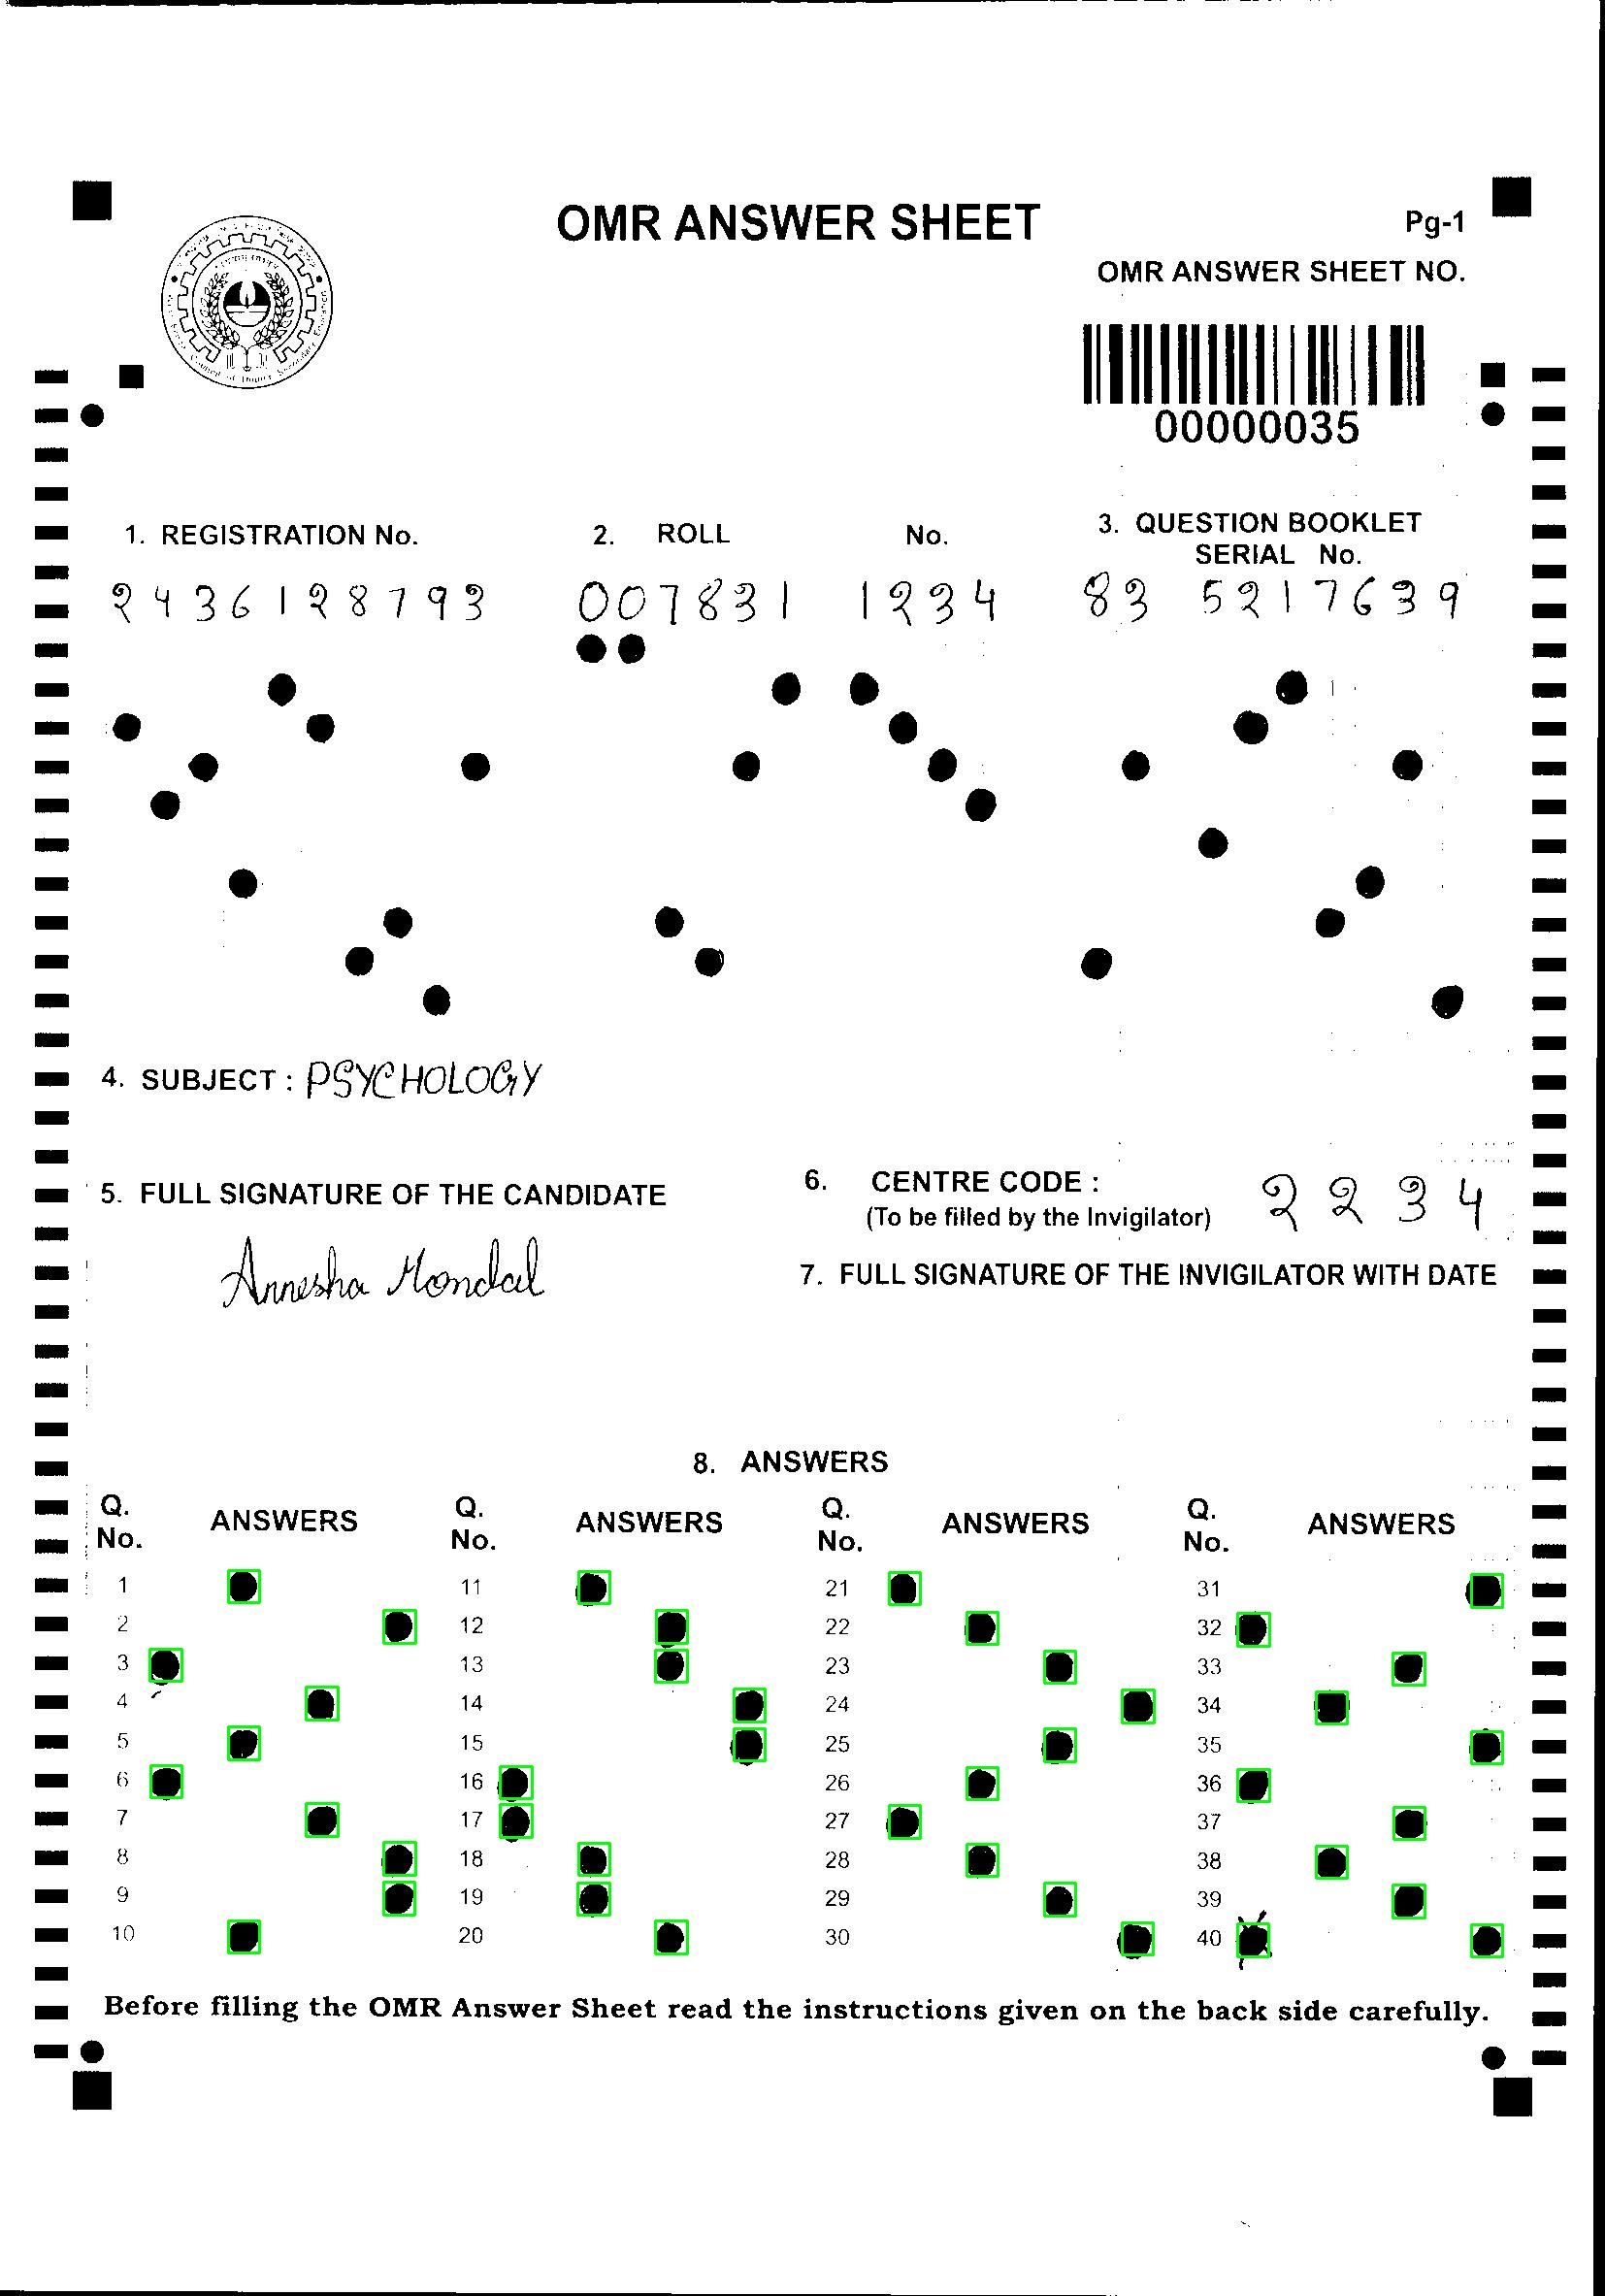 OMR ANSWER SHEET
Pg-1
OMR ANSWER SHEET NO.
00000035
1. REGISTRATION No.
2436128793
2. ROLL No.
007831 1234
3. QUESTION BOOKLET
SERIAL No.
83 5217639
4. SUBJECT : PSYCHOLOGY
5. FULL SIGNATURE OF THE CANDIDATE
Annesha Mondal
6. CENTRE CODE : 2 2 3 4
(To be filled by the Invigilator)
7. FULL SIGNATURE OF THE INVIGILATOR WITH DATE
8. ANSWERS
Q. No. ANSWERS Q. No. ANSWERS Q. No. ANSWERS Q. No. ANSWERS
1 11 21 31
2 12 22 32
3 13 23 33
4 14 24 34
5 15 25 35
6 16 26 36
7 17 27 37
8 18 28 38
9 19 29 39
10 20 30 40
Before filling the OMR Answer Sheet read the instructions given on the back side carefully.